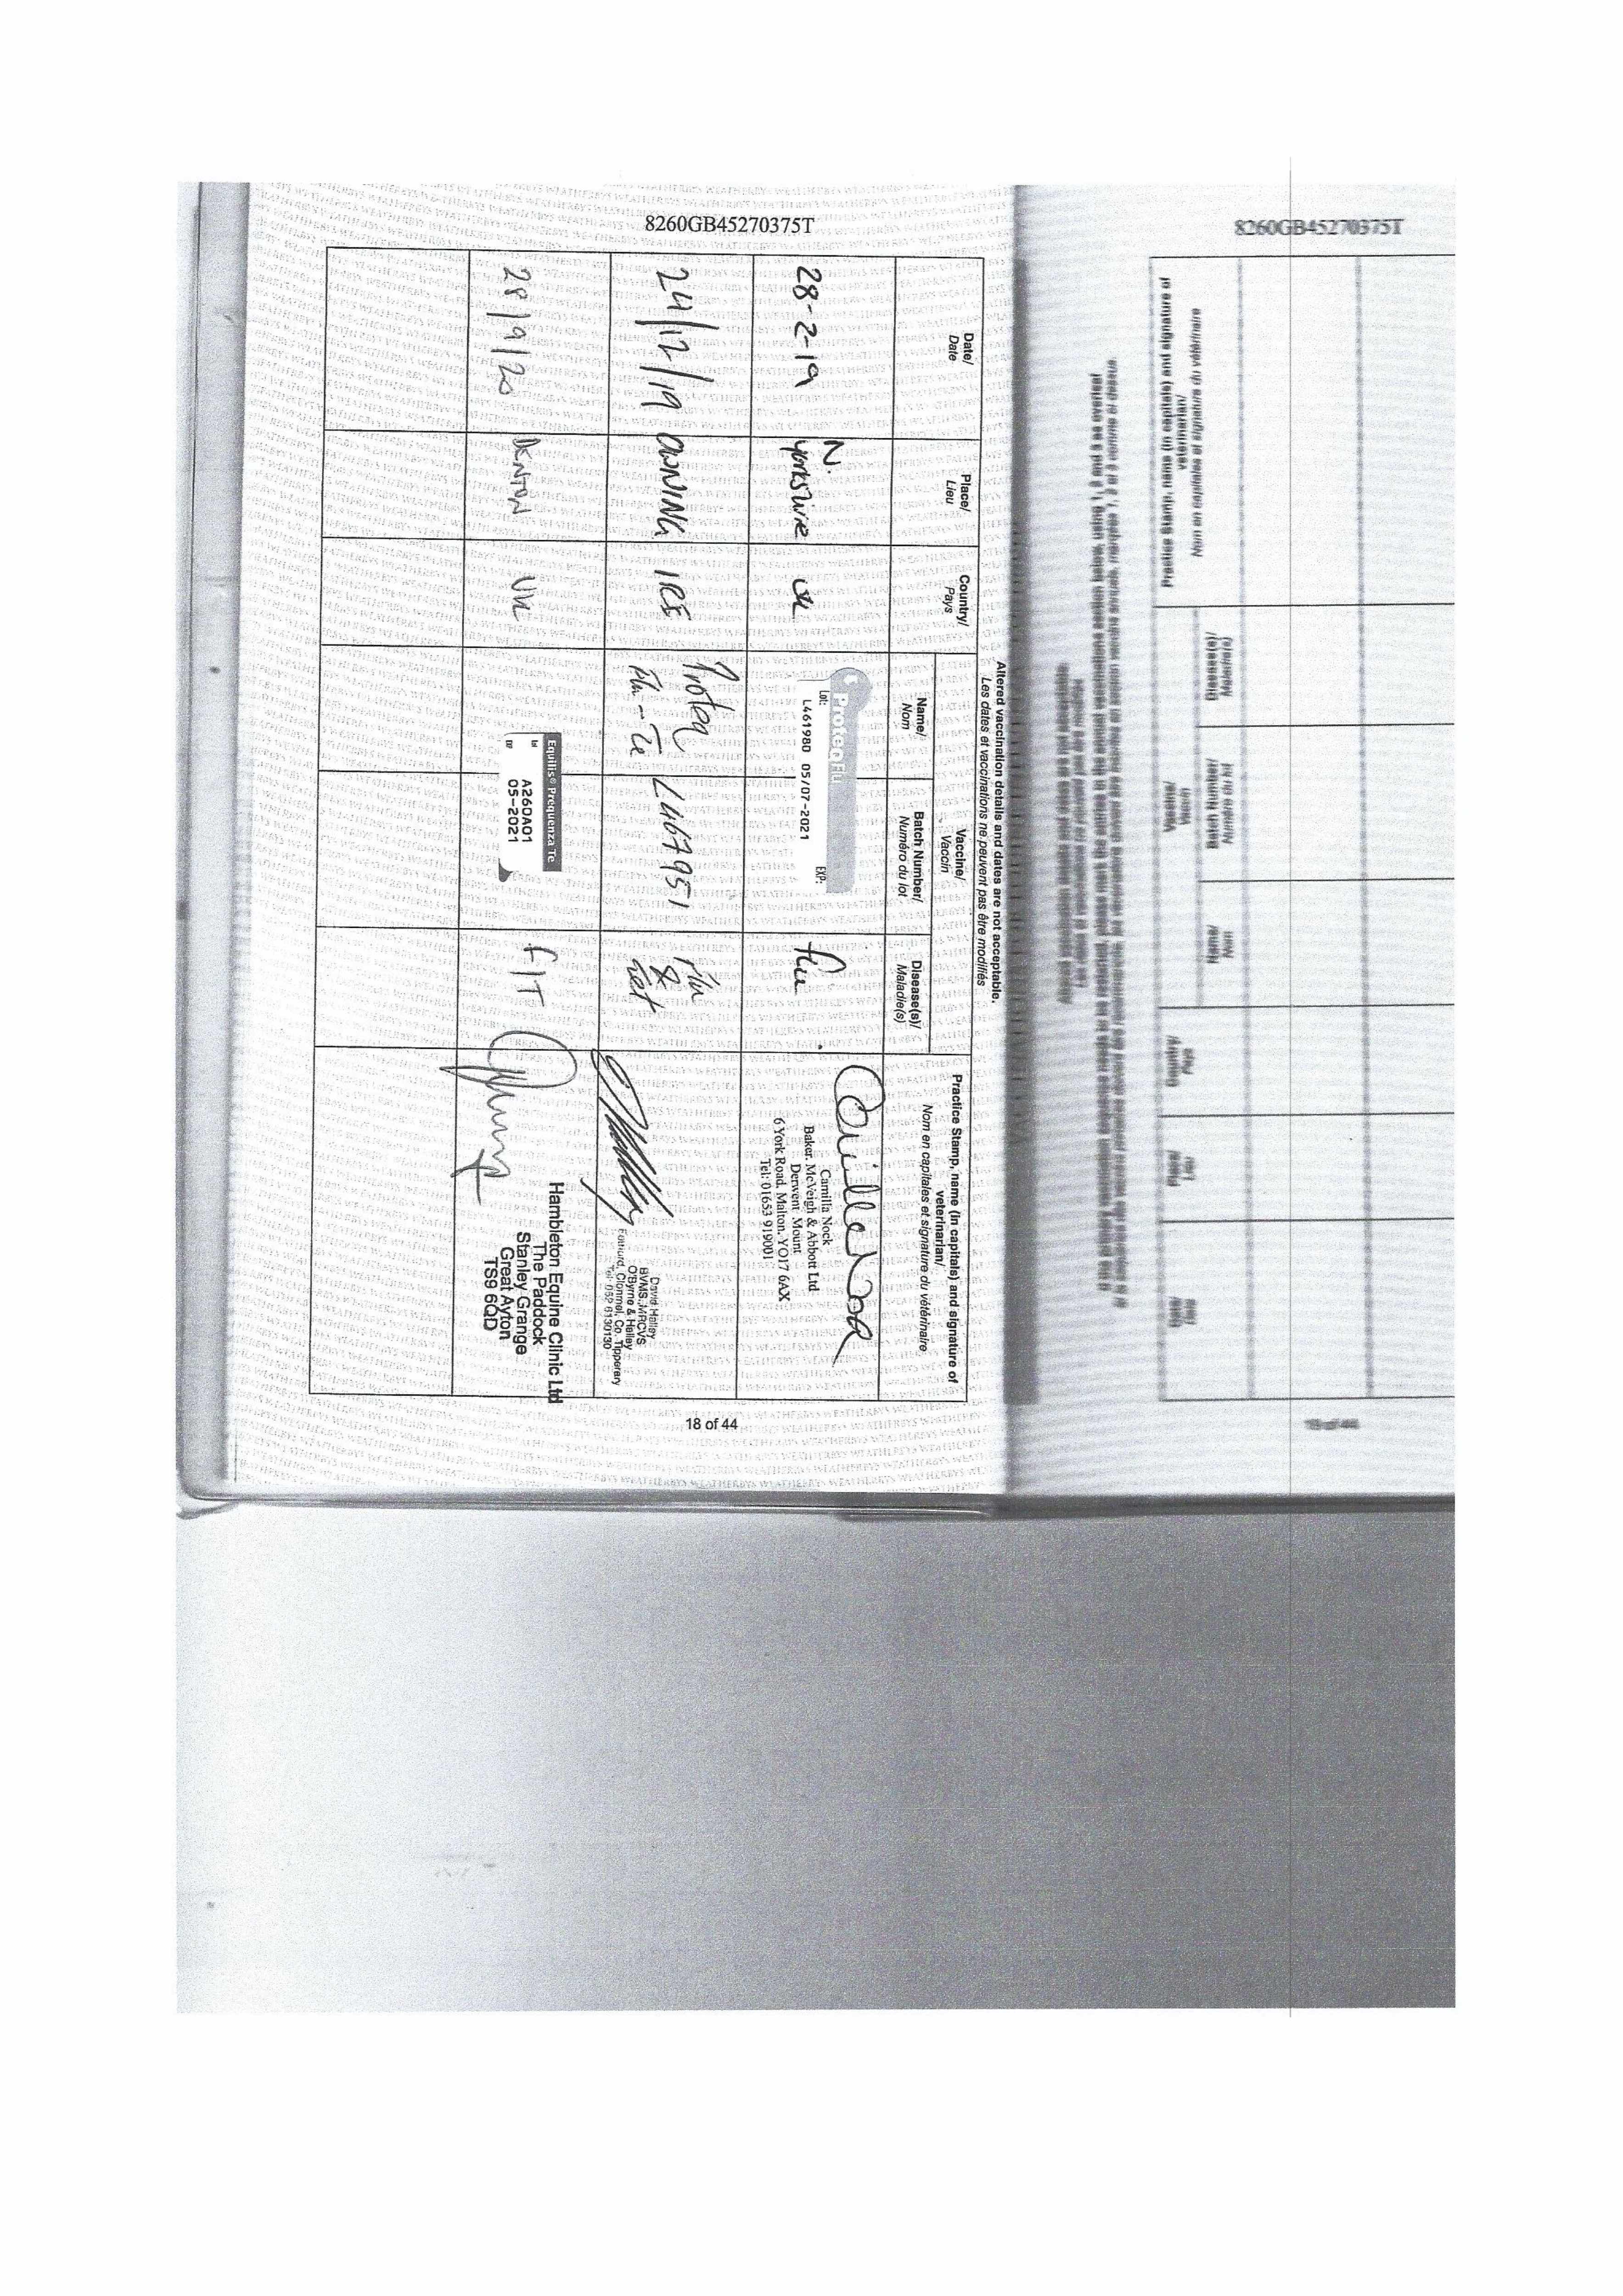 8260GB45270375T
Altered vaccination details and dates are not acceptable.
Les dates et vaccinations ne peuvent pas être modifiés
Date/
Date
Place/
Lieu
Country/
Pays
Vaccine/
Vaccin
Name/
Nom
Batch Number/
Numéro du lot
Disease(s)/
Maladie(s)
Practice Stamp, name (in capitals) and signature of
veterinarian/
Nom en capitales et signature du vétérinaire
28-2-19
N.
Yorkshire
UK
ProteqFlu
Lot:
EXP:
L461980 05/07-2021
flu
Camilla Nock
Baker, McVeigh & Abbott Ltd
Derwent Mount
6 York Road, Malton. YO17 6AX
Tel: 01653 919001
24/12/19
OWNING
IRE
Proteq
Flu - Te
L467951
Flu
&
Tet
David Halley
BVMS.,MRCVS
O'Byrne & Halley
Fethard, Clonmel, Co. Tipperary
Tel: 052 6130130
28/9/20
UK
Equilis® Prequenza Te
A260A01
05-2021
F/T
Hambleton Equine Clinic Ltd
The Paddock
Stanley Grange
Great Ayton
TS9 6QD
18 of 44
8260GB45270375T
Practice Stamp, name (in capitals) and signature of
veterinarian/
Nom en capitales et signature du vétérinaire
Disease(s)/
Maladie(s)
Vaccine/
Vaccin
Batch Number/
Numéro du lot
Name/
Nom
Country/
Pays
Place/
Lieu
Date/
Date
18 of 44